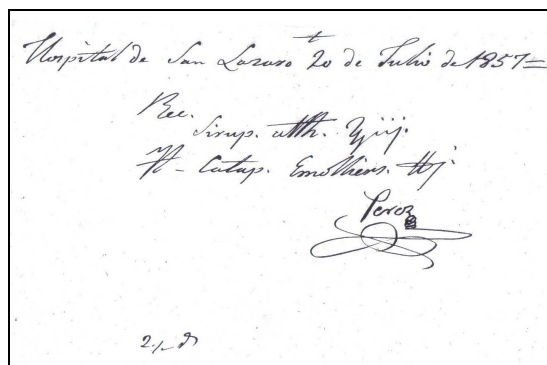 Hospital de San Lazaro 20 de Julio de 1857=
Rec.
Sirup. alth. ℥iij.
It - Catap. Emolliens. ℔j.
Perez